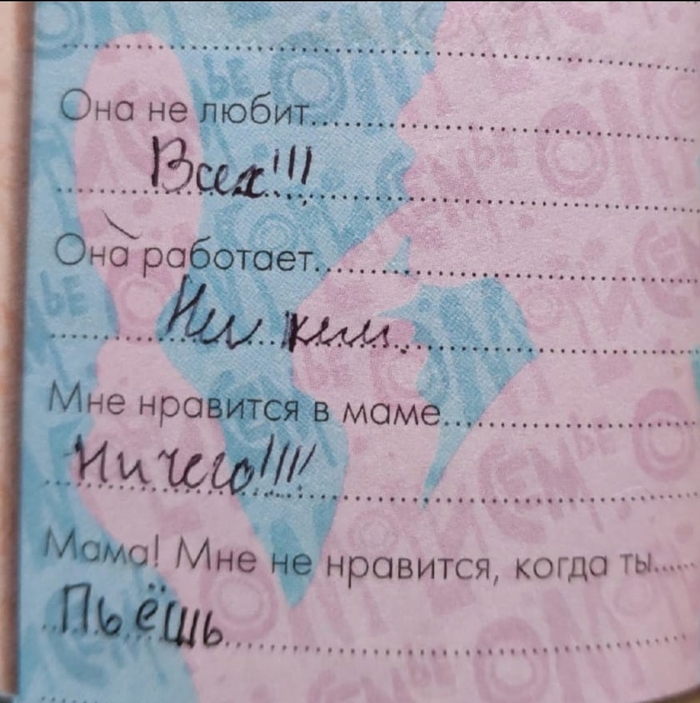 Она не любит
Всех!!!
Она работает
Ни кем.
Мне нравится в маме
Ничего!!!!
Мама! Мне не нравится, когда ты
Пьёшь